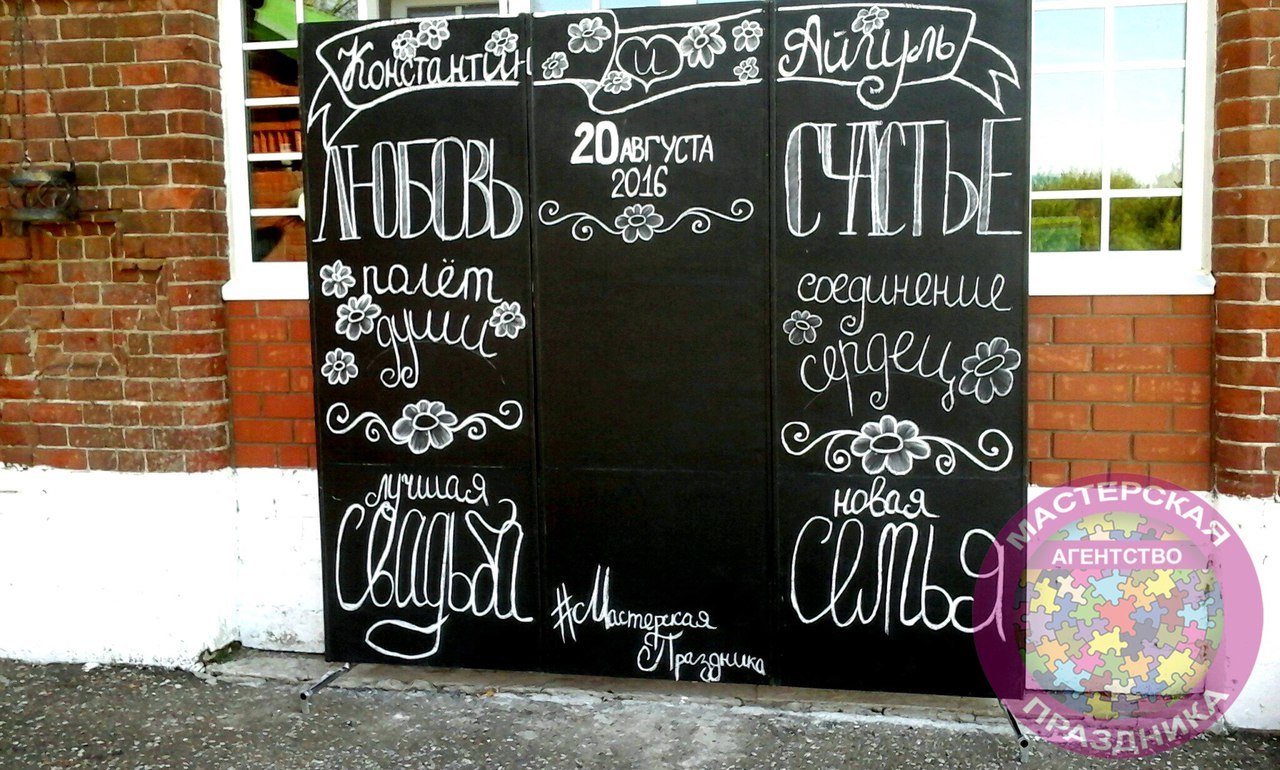 Константин и Айгуль
ЛЮБОВЬ
полёт
души
лучшая
Свадьба
20 АВГУСТА
2016
#Мастерская
Праздника
СЧАСТЬЕ
соединение
сердец
новая
Семья
МАСТЕРСКАЯ
АГЕНТСТВО
ПРАЗДНИКА